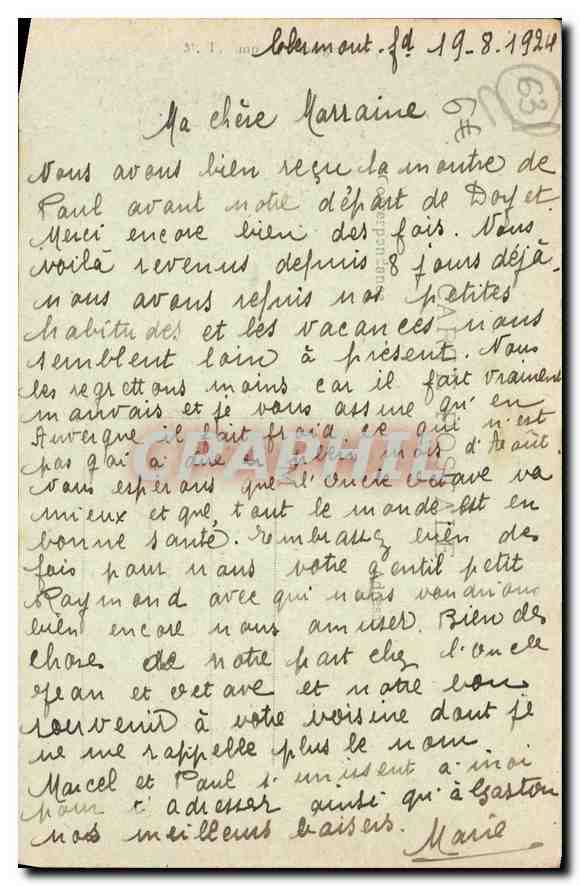 Clermont-fd 19-8.1924
63
Ma chère Marraine
Nous avons bien reçu la montre de
Paul avant notre départ de Doyet.
Merci encore bien des fois. Nous
voilà revenus depuis 8 jours déjà.
nous avons repris nos petites
habitudes et les vacances nous
semblent loin à présent. Nous
les regrettons moins car il fait vraiment
mauvais et je vous assure qu'en
Auvergne il fait froid ce qui n'est
pas gai à dire en plein mois d'Aout.
Nous espérons que l'oncle Octave va
mieux et que tout le monde est en
bonne santé. Embrassez bien des
fois pour nous votre gentil petit
Raymond avec qui nous voudrions
bien encore nous amuser. Bien des
choses de notre part chez l'oncle
Jean et Octave et notre bon
souvenir à votre voisine dont je
ne me rappelle plus le nom
Marcel et Paul s'unissent à moi
pour t'adresser ainsi qu'à Gaston
nos meilleurs baisers.
Marie
CARTE POSTALE
Correspondance
Adresse
CPAPHIL